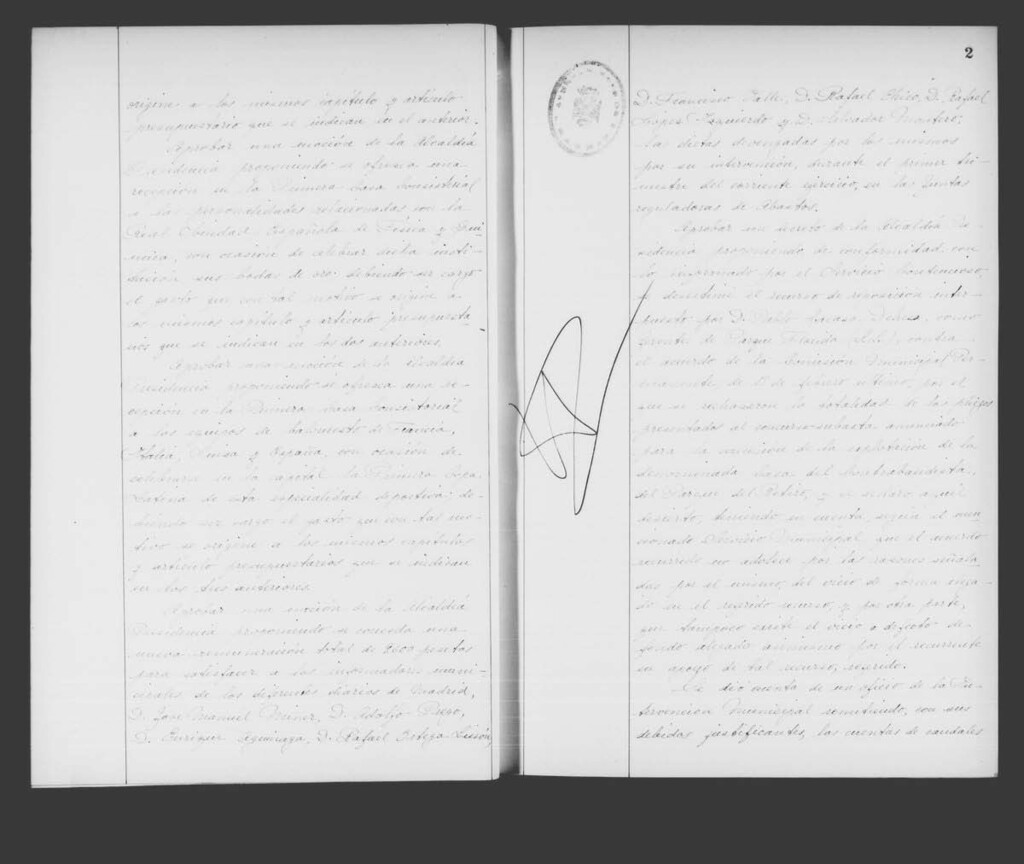 origine a los mismos capítulo y artículo
presupuestario que se indican en el anterior.
Aprobar una moción de la Alcaldía
Presidencia proponiendo se ofrezca una
recepción en la Primera Casa Consistorial
a las personalidades relacionadas con la
Real Sociedad Española de Física y Quí-
mica, con ocasión de celebrar dicha insti-
tución sus bodas de oro, debiendo ser cargo
el gasto que con tal motivo se origine a
los mismos capítulo y artículo presupuesta-
rios que se indican en los dos anteriores.
Aprobar una moción de la Alcaldía
Presidencia proponiendo se ofrezca una re-
cepción en la Primera Casa Consistorial
a los equipos de baloncesto de Francia,
Italia, Suiza y España, con ocasión de
celebrarse en la capital la Primera Copa
Latina de esta especialidad deportiva; de-
biendo ser cargo el gasto que con tal mo-
tivo se origine a los mismos capítulos
y artículo presupuestarios que se indican
en los tres anteriores.
Aprobar una moción de la Alcaldía
Presidencia proponiendo se conceda una
nueva remuneración total de 2.600 pesetas
para satisfacer a los informadores muni-
cipales de los diferentes diarios de Madrid,
D. José Manuel D. Adolfo
D. Enrique D. Rafael Ortega
2
D. Francisco D. Rafael D. Rafael
López Izquierdo y D. Salvador
las dietas devengadas por los mismos
por su intervención, durante el primer tri-
mestre del corriente ejercicio, en las Juntas
reguladoras de Abastos.
Aprobar un decreto de la Alcaldía Pre-
sidencia proponiendo de conformidad con
lo informado por el Servicio Contencioso,
se desestime el recurso de reposición inter-
puesto por D. como
Gerente de Parque Florida (S.L.), contra
el acuerdo de la Comisión Municipal Per-
manente de de febrero último, por el
que se rechazaron la totalidad de los pliegos
presentados al concurso-subasta anunciado
para la concesión de la explotación de la
denominada Casa del Contrabandista,
del Parque del Retiro, y se declaró a aquel
desierto, teniendo en cuenta, según el men-
cionado Servicio Municipal que el acuerdo
recurrido no adolece por las razones señala-
das por el mismo, del vicio de forma
en el referido recurso, y por otra parte,
que tampoco existe el vicio o defecto de
fondo alegado asimismo por el recurrente
en apoyo de tal recurso, referido.
Se dio cuenta de un oficio de la In-
tervención Municipal remitiendo, con sus
debidos justificantes, las cuentas de caudales